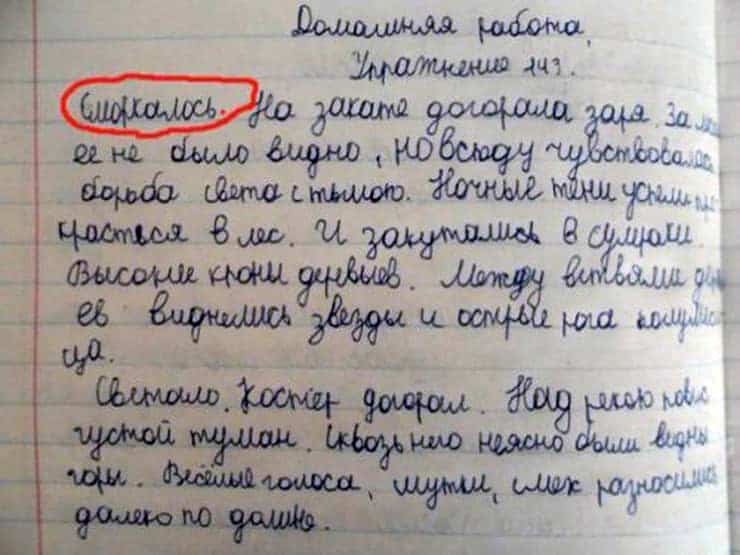 Домашняя работа,
Упражнение 143.
Сморкалось. На закате догорала заря. За
ее не было видно, но всюду чувствовалась
борьба света с тьмою. Ночные тени успели про
красться в лес. И закутались в сумраки.
Высокие кроны деревьев. Между ветвями дер
ев виднелись звезды и острые рога полумес
ца.
Светало. Костер догорал. Над рекою повис
густой туман. Сквозь него неясно были видны
горы. Весёлые голоса, шутки, смех разносились
далеко по долине.